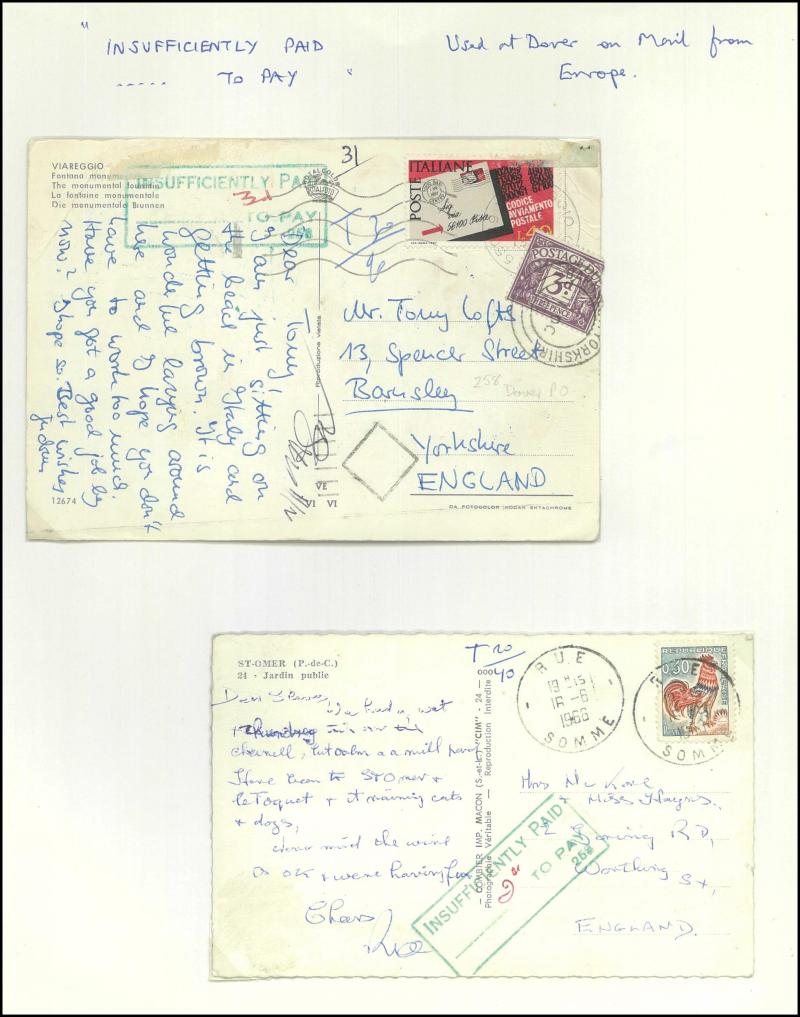 "
INSUFFICIENTLY PAID
..... TO PAY "
Used at Dover on Mail from
Europe.
VIAREGGIO
Fontana monumentale
The monumental fountain
La fontaine monumentale
Die monumentale Brunnen
INSUFFICIENTLY PAID
3d
TO PAY
258
31
POSTE ITALIANE
CODICE
AVVIAMENTO
POSTALE
L.40
1
56100
POSTAGE DUE
3d
THREE PENCE
YORKSHIRE
Dear Tony!
I am just sitting on
the beach in Italy and
getting brown. It is
wonderful laying around
here and I hope you don't
have to work too much.
Have you got a good job by
now? I hope so. Best wishes
12674
Riproduzione vietata
Mr. Tony Lofts
13, Spencer Street
Barnsley
258 Dover P.O
Yorkshire
ENGLAND
VE
VI VI
DA FOTOCOLOR KODAK EKTACHROME
ST-OMER (P.-de-C.)
24 - Jardin public
T 20
40
RUE
19 H15
16-6
1966
SOMME
REPUBLIQUE
FRANCAISE
0,30
RUE
SOMME
COMBIER IMP. MACON (S.-et-L.) "CIM" - 24 - 000
Photographie Véritable - Reproduction Interdite
Have been to St Omer &
le Toquet & it raining cats
& dogs,
never mind the wine
is ok & were having fun
Cheers
INSUFFICIENTLY PAID
2d
TO PAY
258
& Miss Haynes.
2 Goring RD,
Worthing
Sx,
ENGLAND.